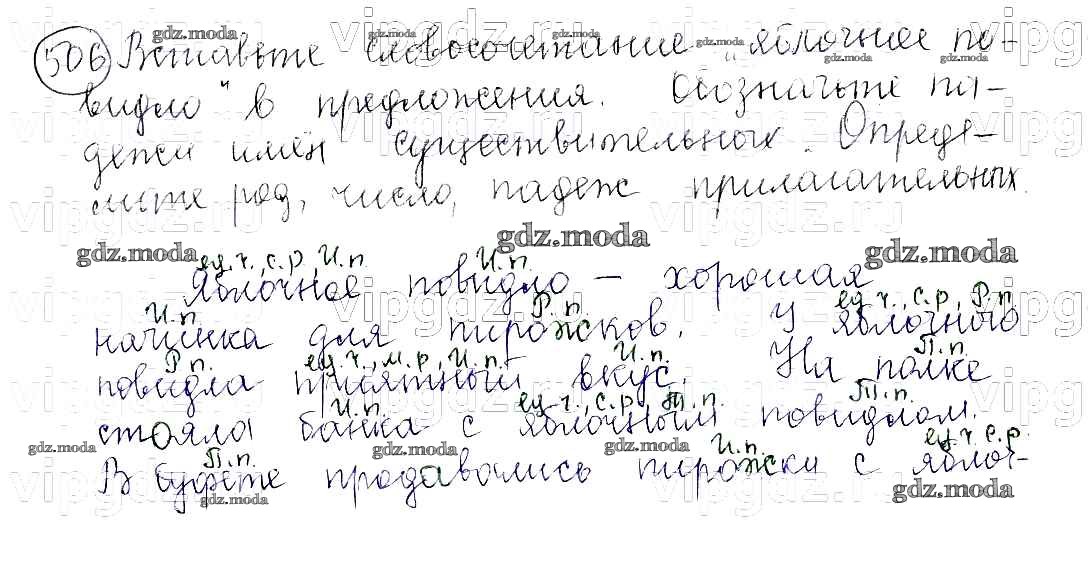 506 Вставьте словосочетание „яблочное по-
видло" в предложения. Обозначьте па-
дежи имён существительных. Опреде-
лите род, число, падеж прилагательных.
ед.ч., с.р, И.п. И.п.
Яблочное повидло – хорошая
И.п. Р.п. ед.ч., с.р, Р.п
начинка для пирожков. У яблочного
Р п. ед.ч., м.р, И.п. И.п. П.п.
повидла приятный вкус. На полке
И.п. ед.ч., с.р, Т.п. Т.п.
стояла банка с яблочным повидлом.
П.п. И.п. ед.ч. с.р.
В буфете продавались пирожки с яблоч-
gdz.moda
vipgdz.ru